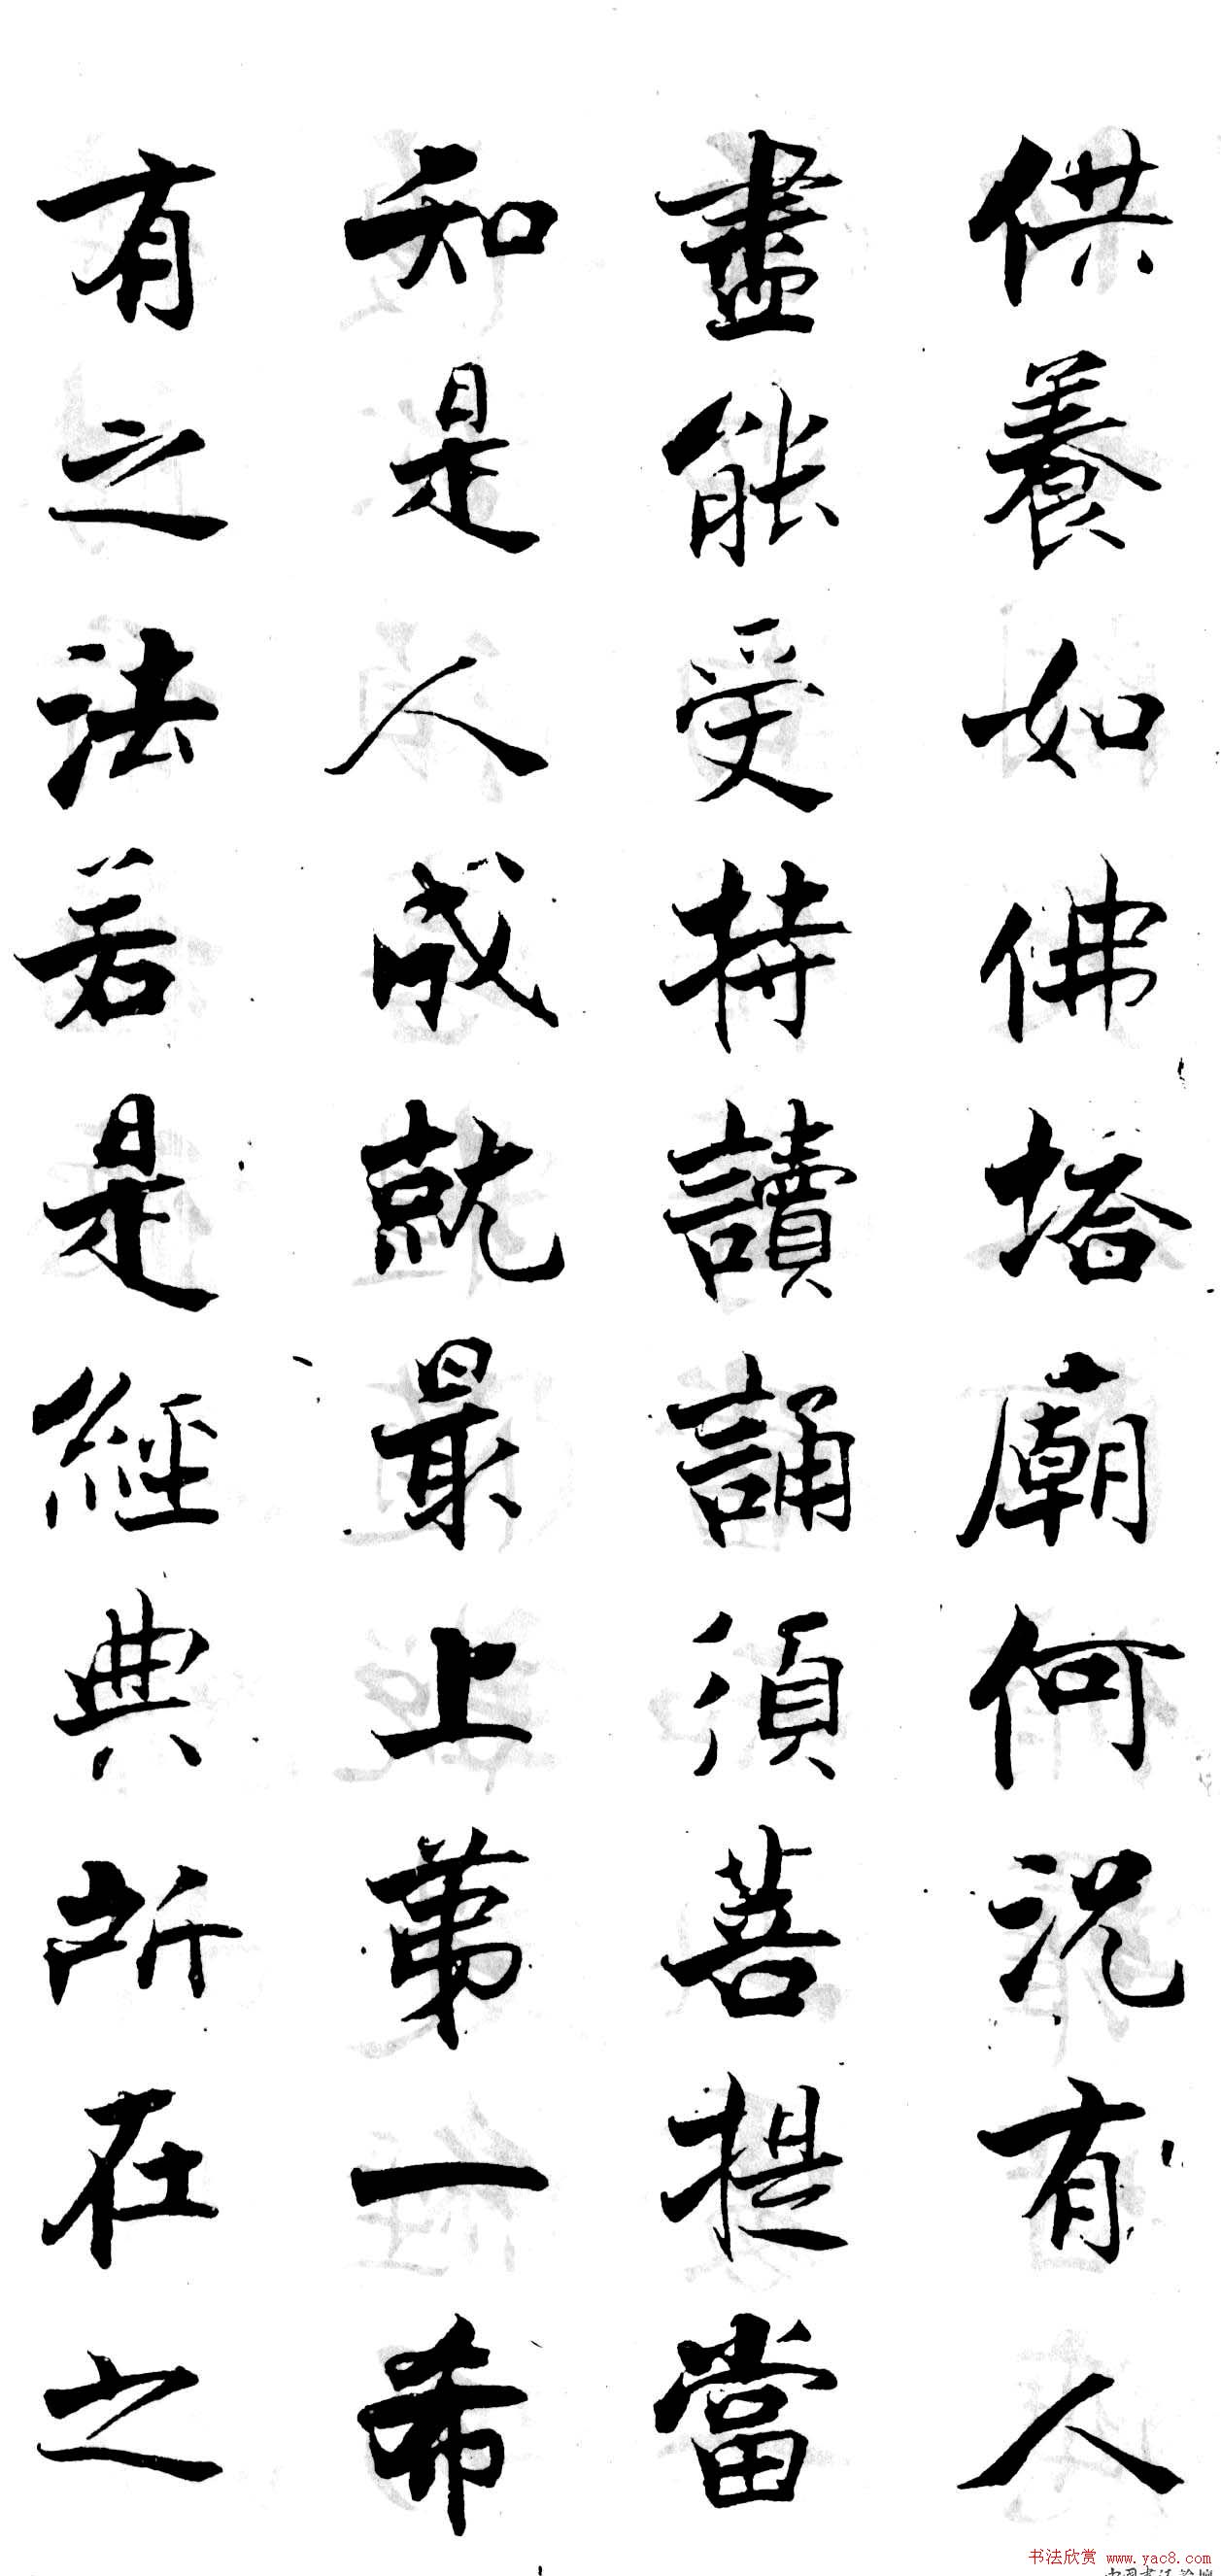 供養如佛塔廟何況有人
盡能受持讀誦須菩提當
知是人成就最上第一希
有之法若是經典所在之
书法欣赏 www.yac8.com